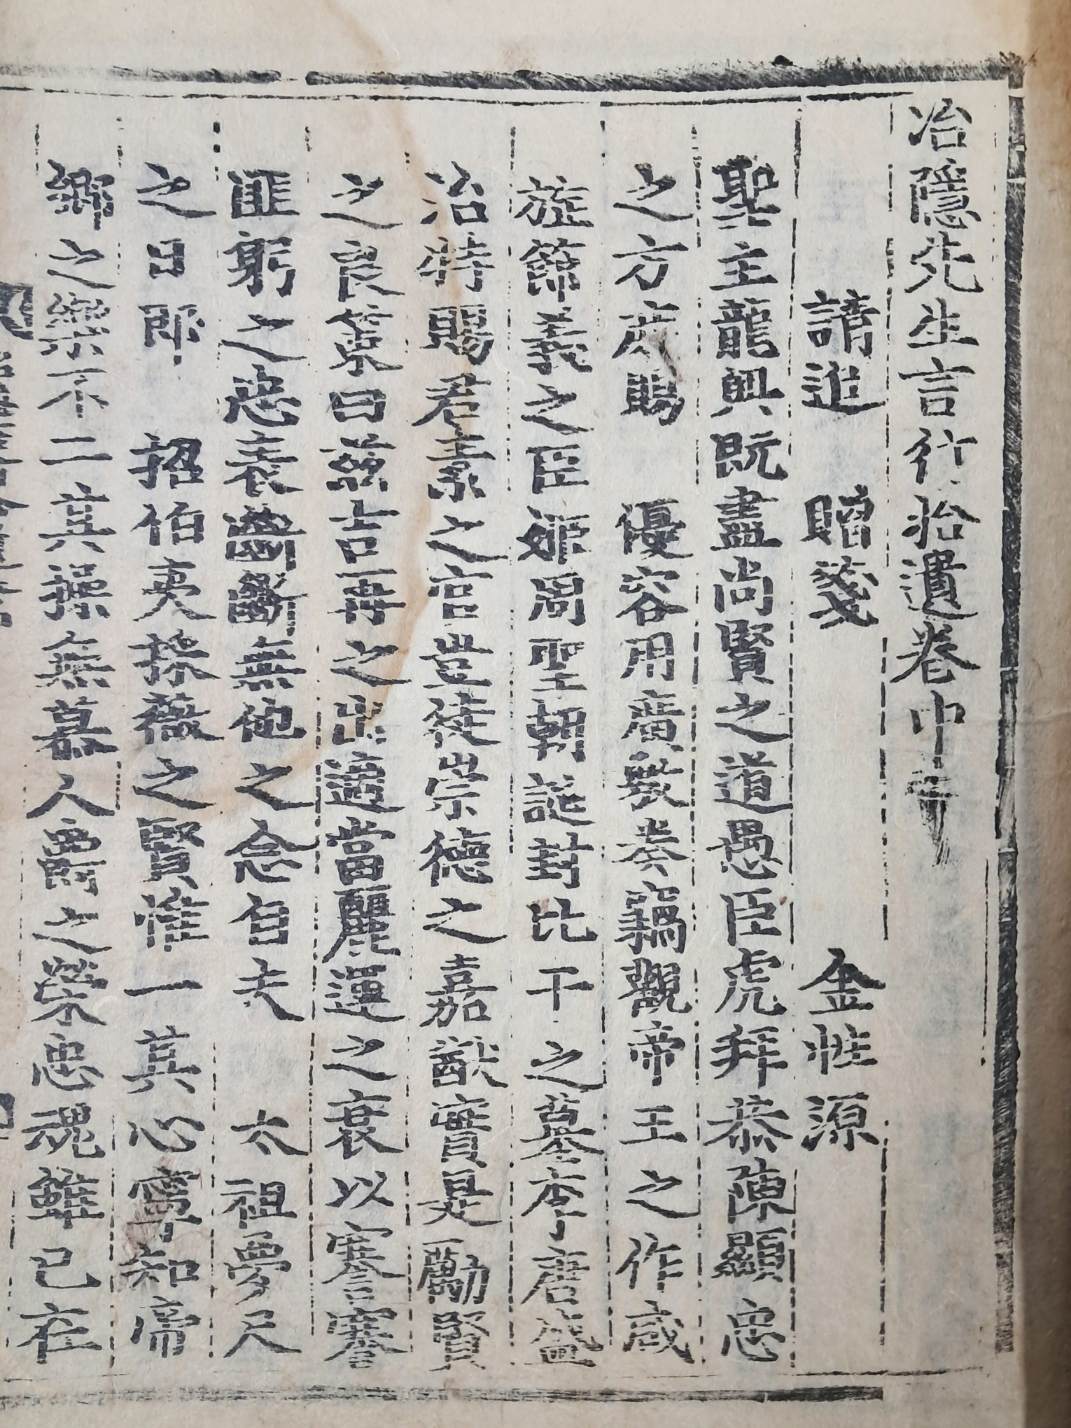 冶隱先生言行拾遺卷中
請追贈箋 金性源
聖主龍興旣盡尚賢之道愚臣虎拜恭陳顯忠
之方庶賜 優容用廣裒奏竊觀帝王之作咸
旌節義之臣姬周聖朝誕封比干之墓李唐盛
冶特賜君素之官豈徒崇德之嘉猷實是勵賢
之良策曰玆吉再之出適當麗運之衰以謇謇
匪躬之忠表斷斷無他之念自夫 太祖夢尺
之日卽 招伯夷採薇之賢惟一其心寧知帝
鄕之樂不二其操無慕人爵之榮忠魂雖已在